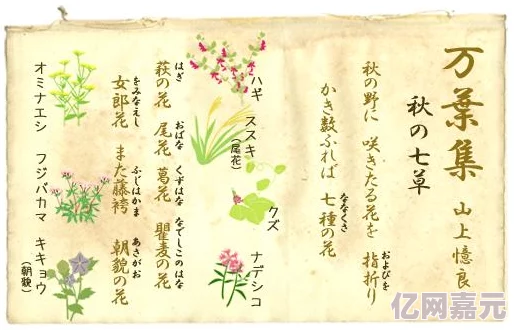 万葉集 山上憶良
秋の七草
秋の野に 咲きたる花を 指折り
およびを
かき数ふれば 七種の花
ななくさ
萩の花 尾花 葛花 瞿麦の花
はぎ おばな くずはな なでしこのはな
女郎花 また藤袴 朝貌の花
をみなえし ふじはかま あさがお
ハギ
ススキ
(尾花)
クズ
ナデシコ
オミナエシ
フジバカマ
キキョウ
(朝貌)
亿网嘉元